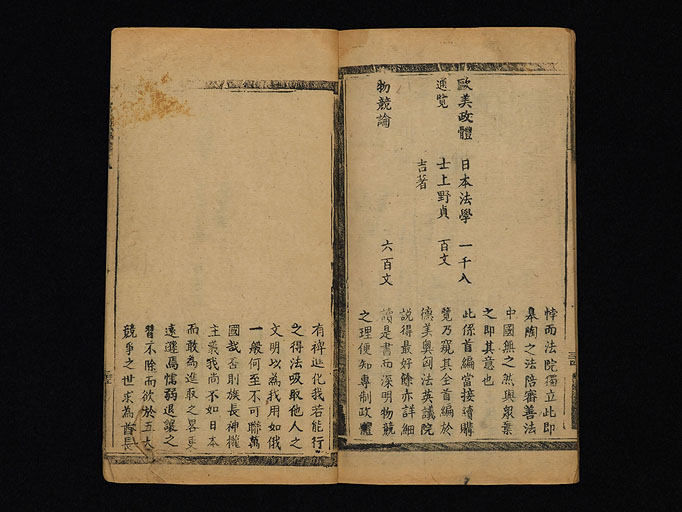 悖而法院獨立此即
皋陶之法陪審善法
中國無之然與衆棄
之即其意也
歐美政體 日本法學 一千入 此係首編當接續購
通覧 士上野貞 百文 覽乃窺其全首編於
吉著 德美奧匈法英議院
說得最好餘亦詳細
物競論 六百文 讀是書而深明物競
之理便知專制政體
有裨進化我若能行
之得法吸取他人之
文明以為我用如俄
一般何至不可聯萬
國哉否則族長神權
主義我尚不如日本
而敢為進取之畧更
遠遜焉懦弱退讓之
習不除而欲於五大
競爭之世求為酋長